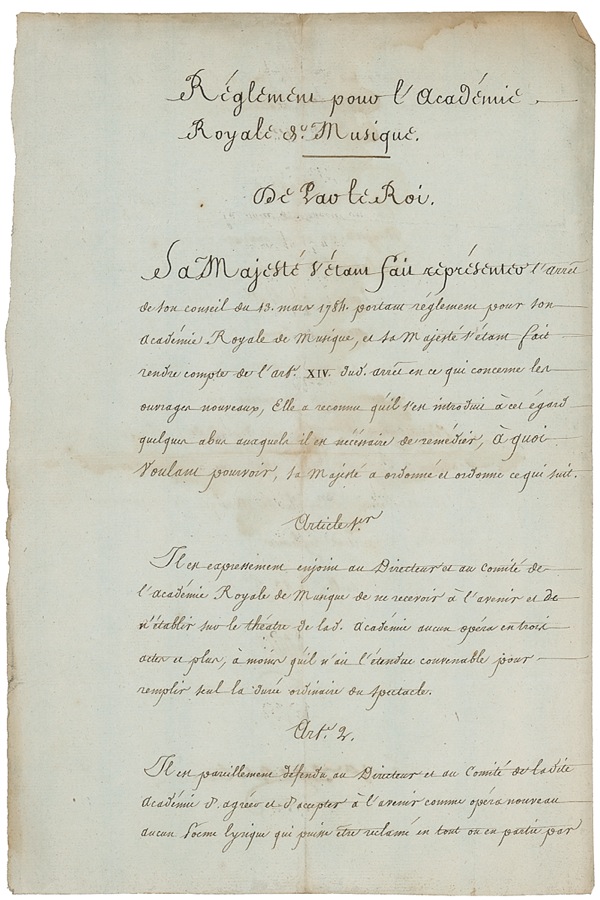 Réglement pour l'Académie
Royale de Musique.
De Par le Roi.
Sa Majesté s'étant fait représenter l'arrêt
de son conseil du 13. mars 1784. portant réglement pour son
académie Royale de Musique, et sa Majesté s'étant fait
rendre compte de l'art. XIV. dud. arrêt en ce qui concerne les
ouvrages nouveaux, Elle a reconnu qu'il s'en introduit à cet égard
quelques abus auxquels il est nécessaire de remédier, à quoi
Voulant pourvoir, sa Majesté a ordonné et ordonne ce qui suit.
Article 1er
Il est expressément enjoint au Directeur et au Comité de
l'académie Royale de Musique de ne recevoir à l'avenir et de
n'établir sur le théatre de lad. académie aucun opéra en trois
actes et plus, à moins qu'il n'ait l'étendue convenable pour
remplir seul la durée ordinaire du spectacle.
Art. 2.
Il est pareillement défendu au Directeur et au Comité de ladite
académie d'agréer et d'accepter à l'avenir comme opéra nouveau
aucun Poeme lyrique qui puisse être réclamé en tout ou en partie par